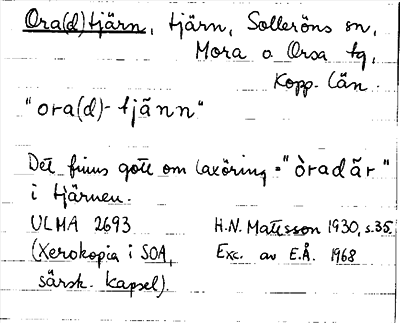 Ora(d)tjärn, tjärn, Solleröns sn,
Mora o Orsa tg,
Kopp. län.
"ora(d)-tjänn"
Det finns gott om laxöring = "òradär"
i tjärnen.
ULMA 2693 H.N. Matsson 1930, s.35.
(Xerokopia i SOA, Exc. av E.Å. 1968
särsk. kapsel).